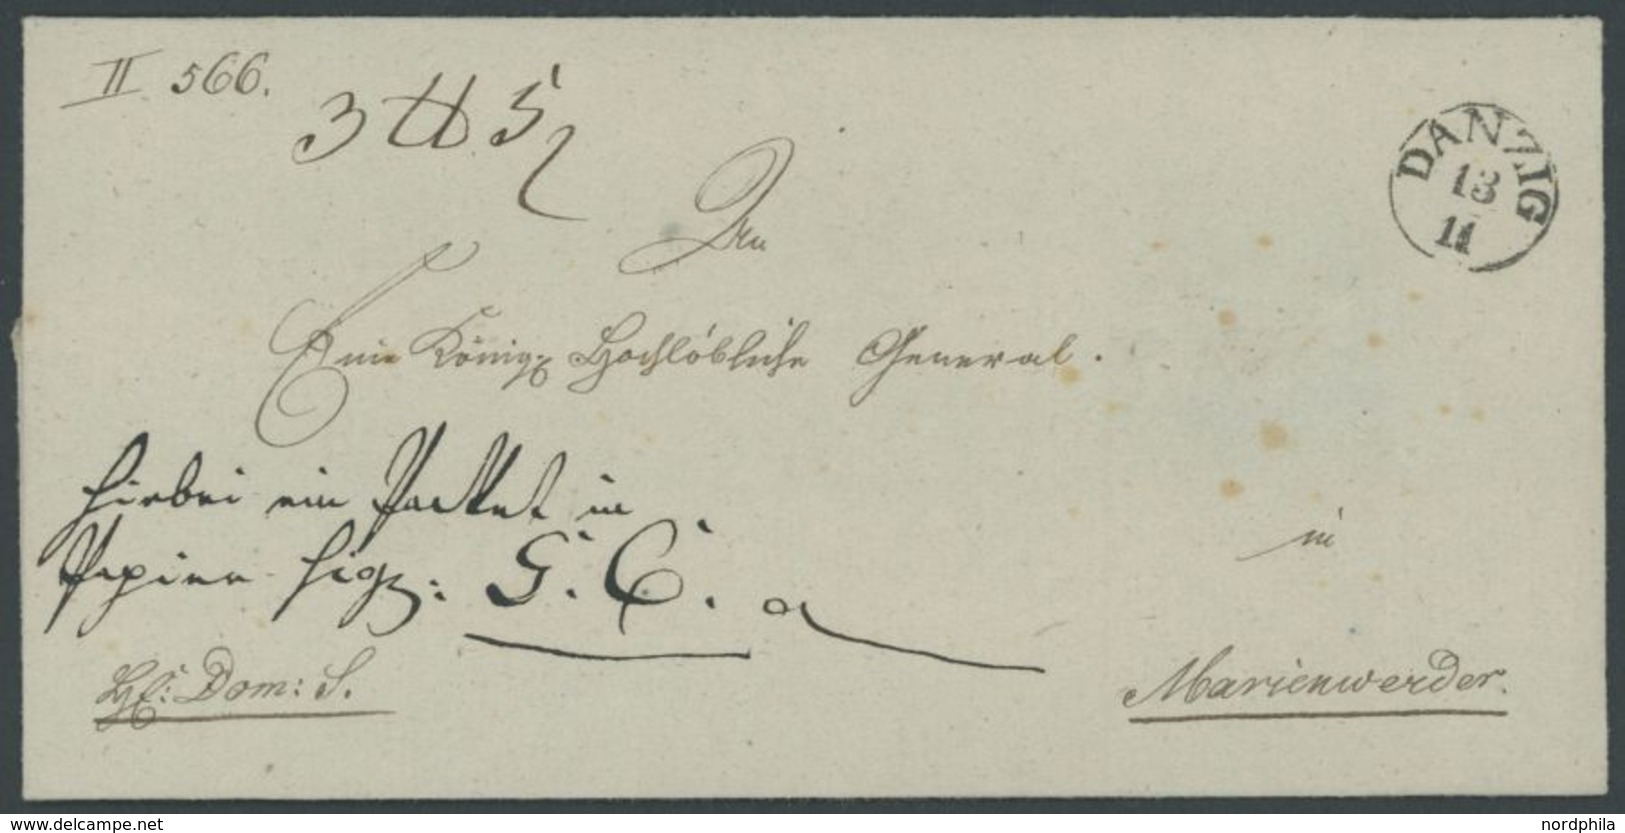 II 566.
3 ℔ 5
DANZIG
13
11
An
Eine Königl. Hochlöbliche General.
hierbei ein Packet in
Papier sigz: G. C. a
in
Hf: Dom: S.
Marienwerder.
www.delcampe.net
nordphila